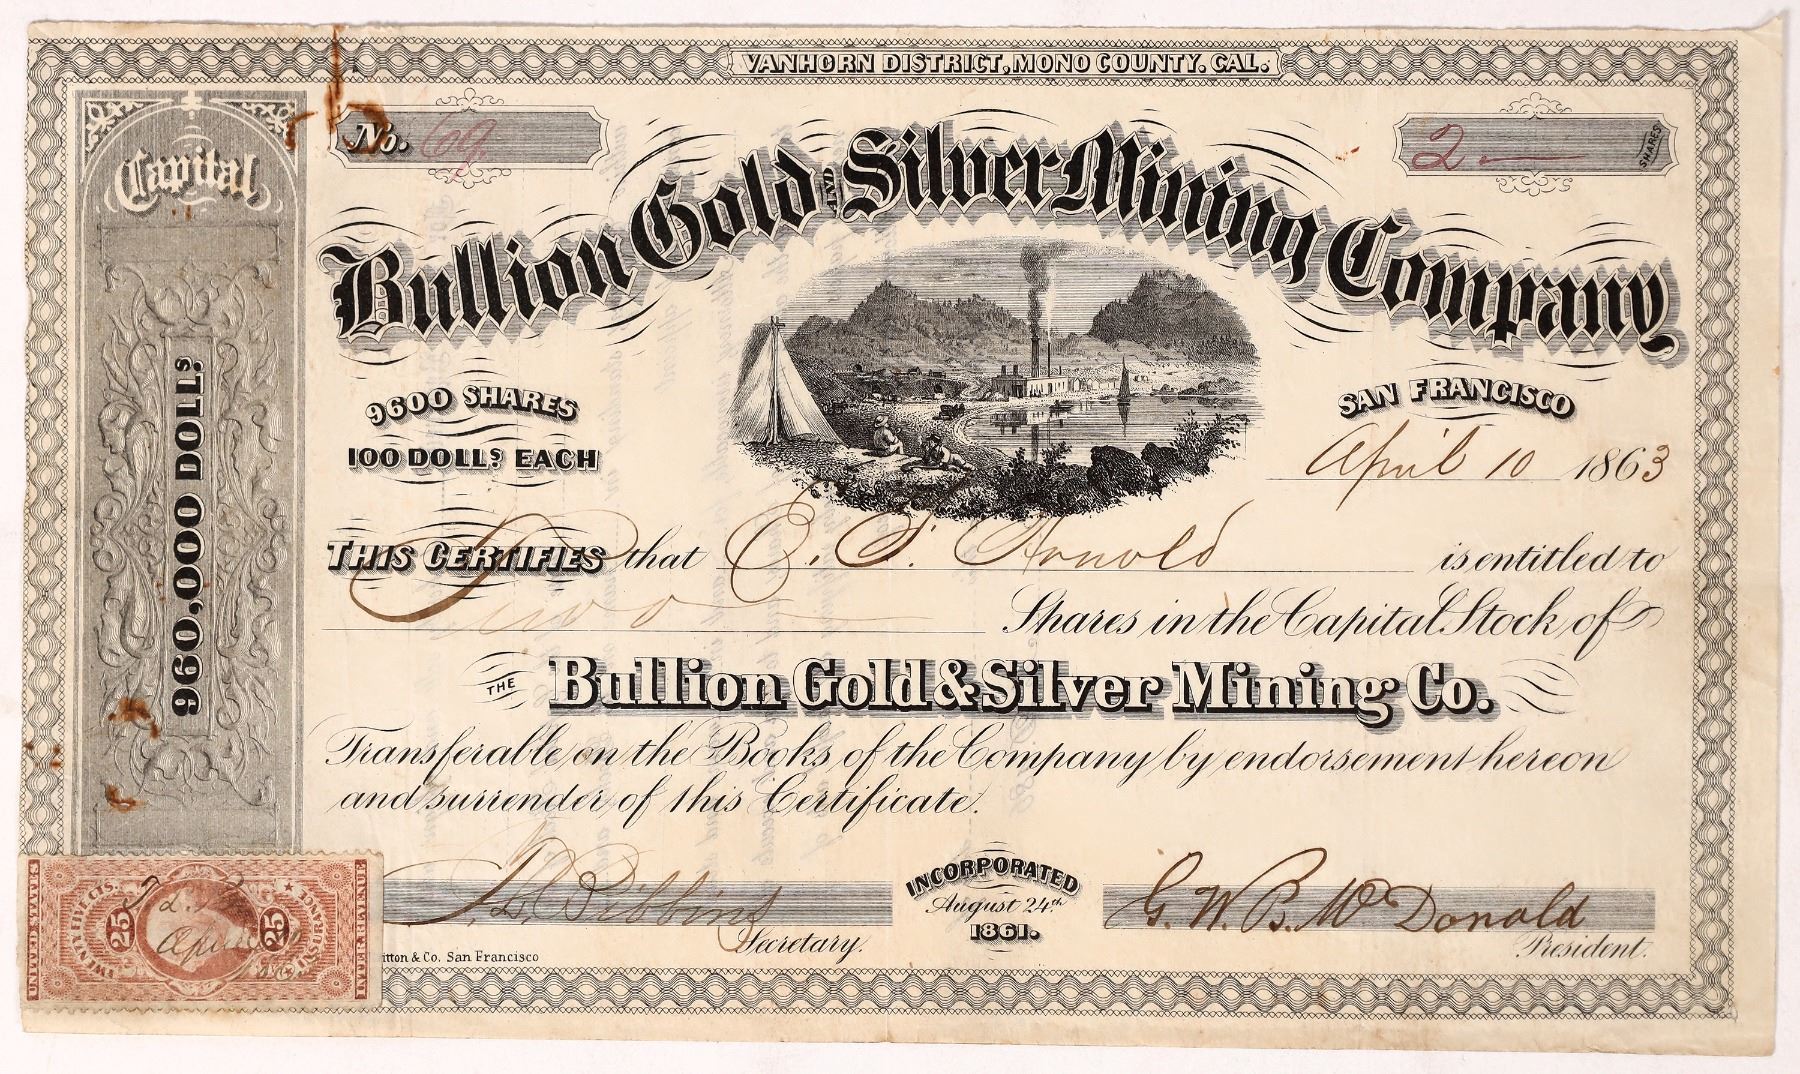 VANHORN DISTRICT, MONO COUNTY. CAL.
No. 69.
2 — SHARES
Capital
960,000 DOLLS.
Bullion Gold AND Silver Mining Company
9600 SHARES
100 DOLLS. EACH
SAN FRANCISCO
April 10 1863
THIS CERTIFIES that E. F. Arnold is entitled to
Two Shares in the Capital Stock of
THE Bullion Gold & Silver Mining Co.
Transferable on the Books of the Company by endorsement hereon
and surrender of this Certificate.
Secretary.
INCORPORATED
August 24th
1861.
G. W. B. McDonald
President.
itton & Co. San Francisco
UNITED STATES
TWENTY FIVE CTS.
25
25
INSURANCE
INTER. REVENUE